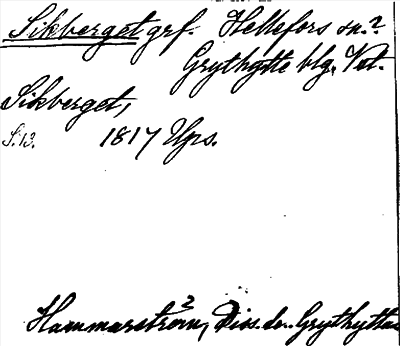 Sikberget grf. Hellefors sn.?
Grythytte blg. Vstm.
Sikberget,
S. 13. 1817 Ups.
Hammarström 2, Diss. de Grythyttan